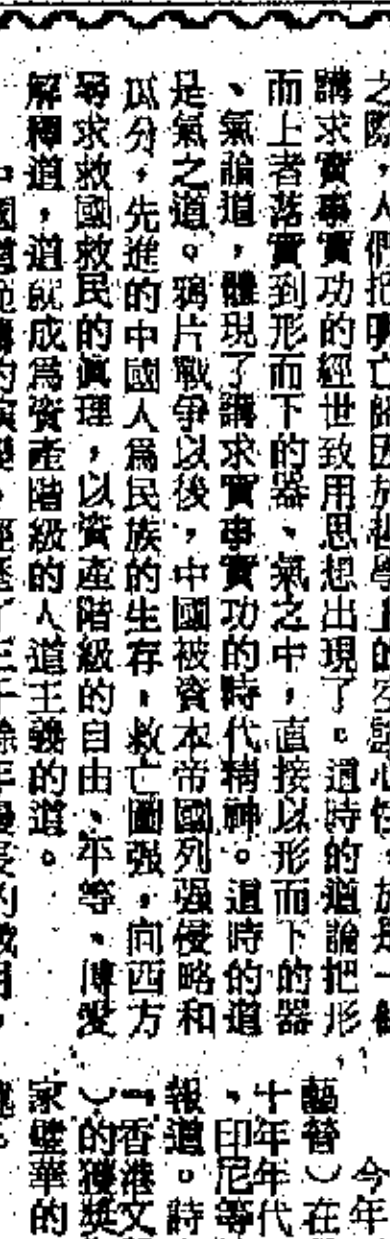 講求實事實功的經世致用思想出現了。這時的道論把形
而上者落實到形而下的器、氣之中，直接以形而下的器
、氣論道，體現了講求實事實功的時代精神。這時的道
是氣之道。鴉片戰爭以後，中國被資本帝國列强侵略和
瓜分，先進的中國人爲民族的生存，救亡圖强，向西方
尋求救國救民的眞理，以資產階級的自由、平等、博愛
解釋道，道就成爲資產階級的人道主義的道。
今年
藝晉）在
十年年代
、印尼等
報道。詩
香港文
）的獲獎
家璧華的